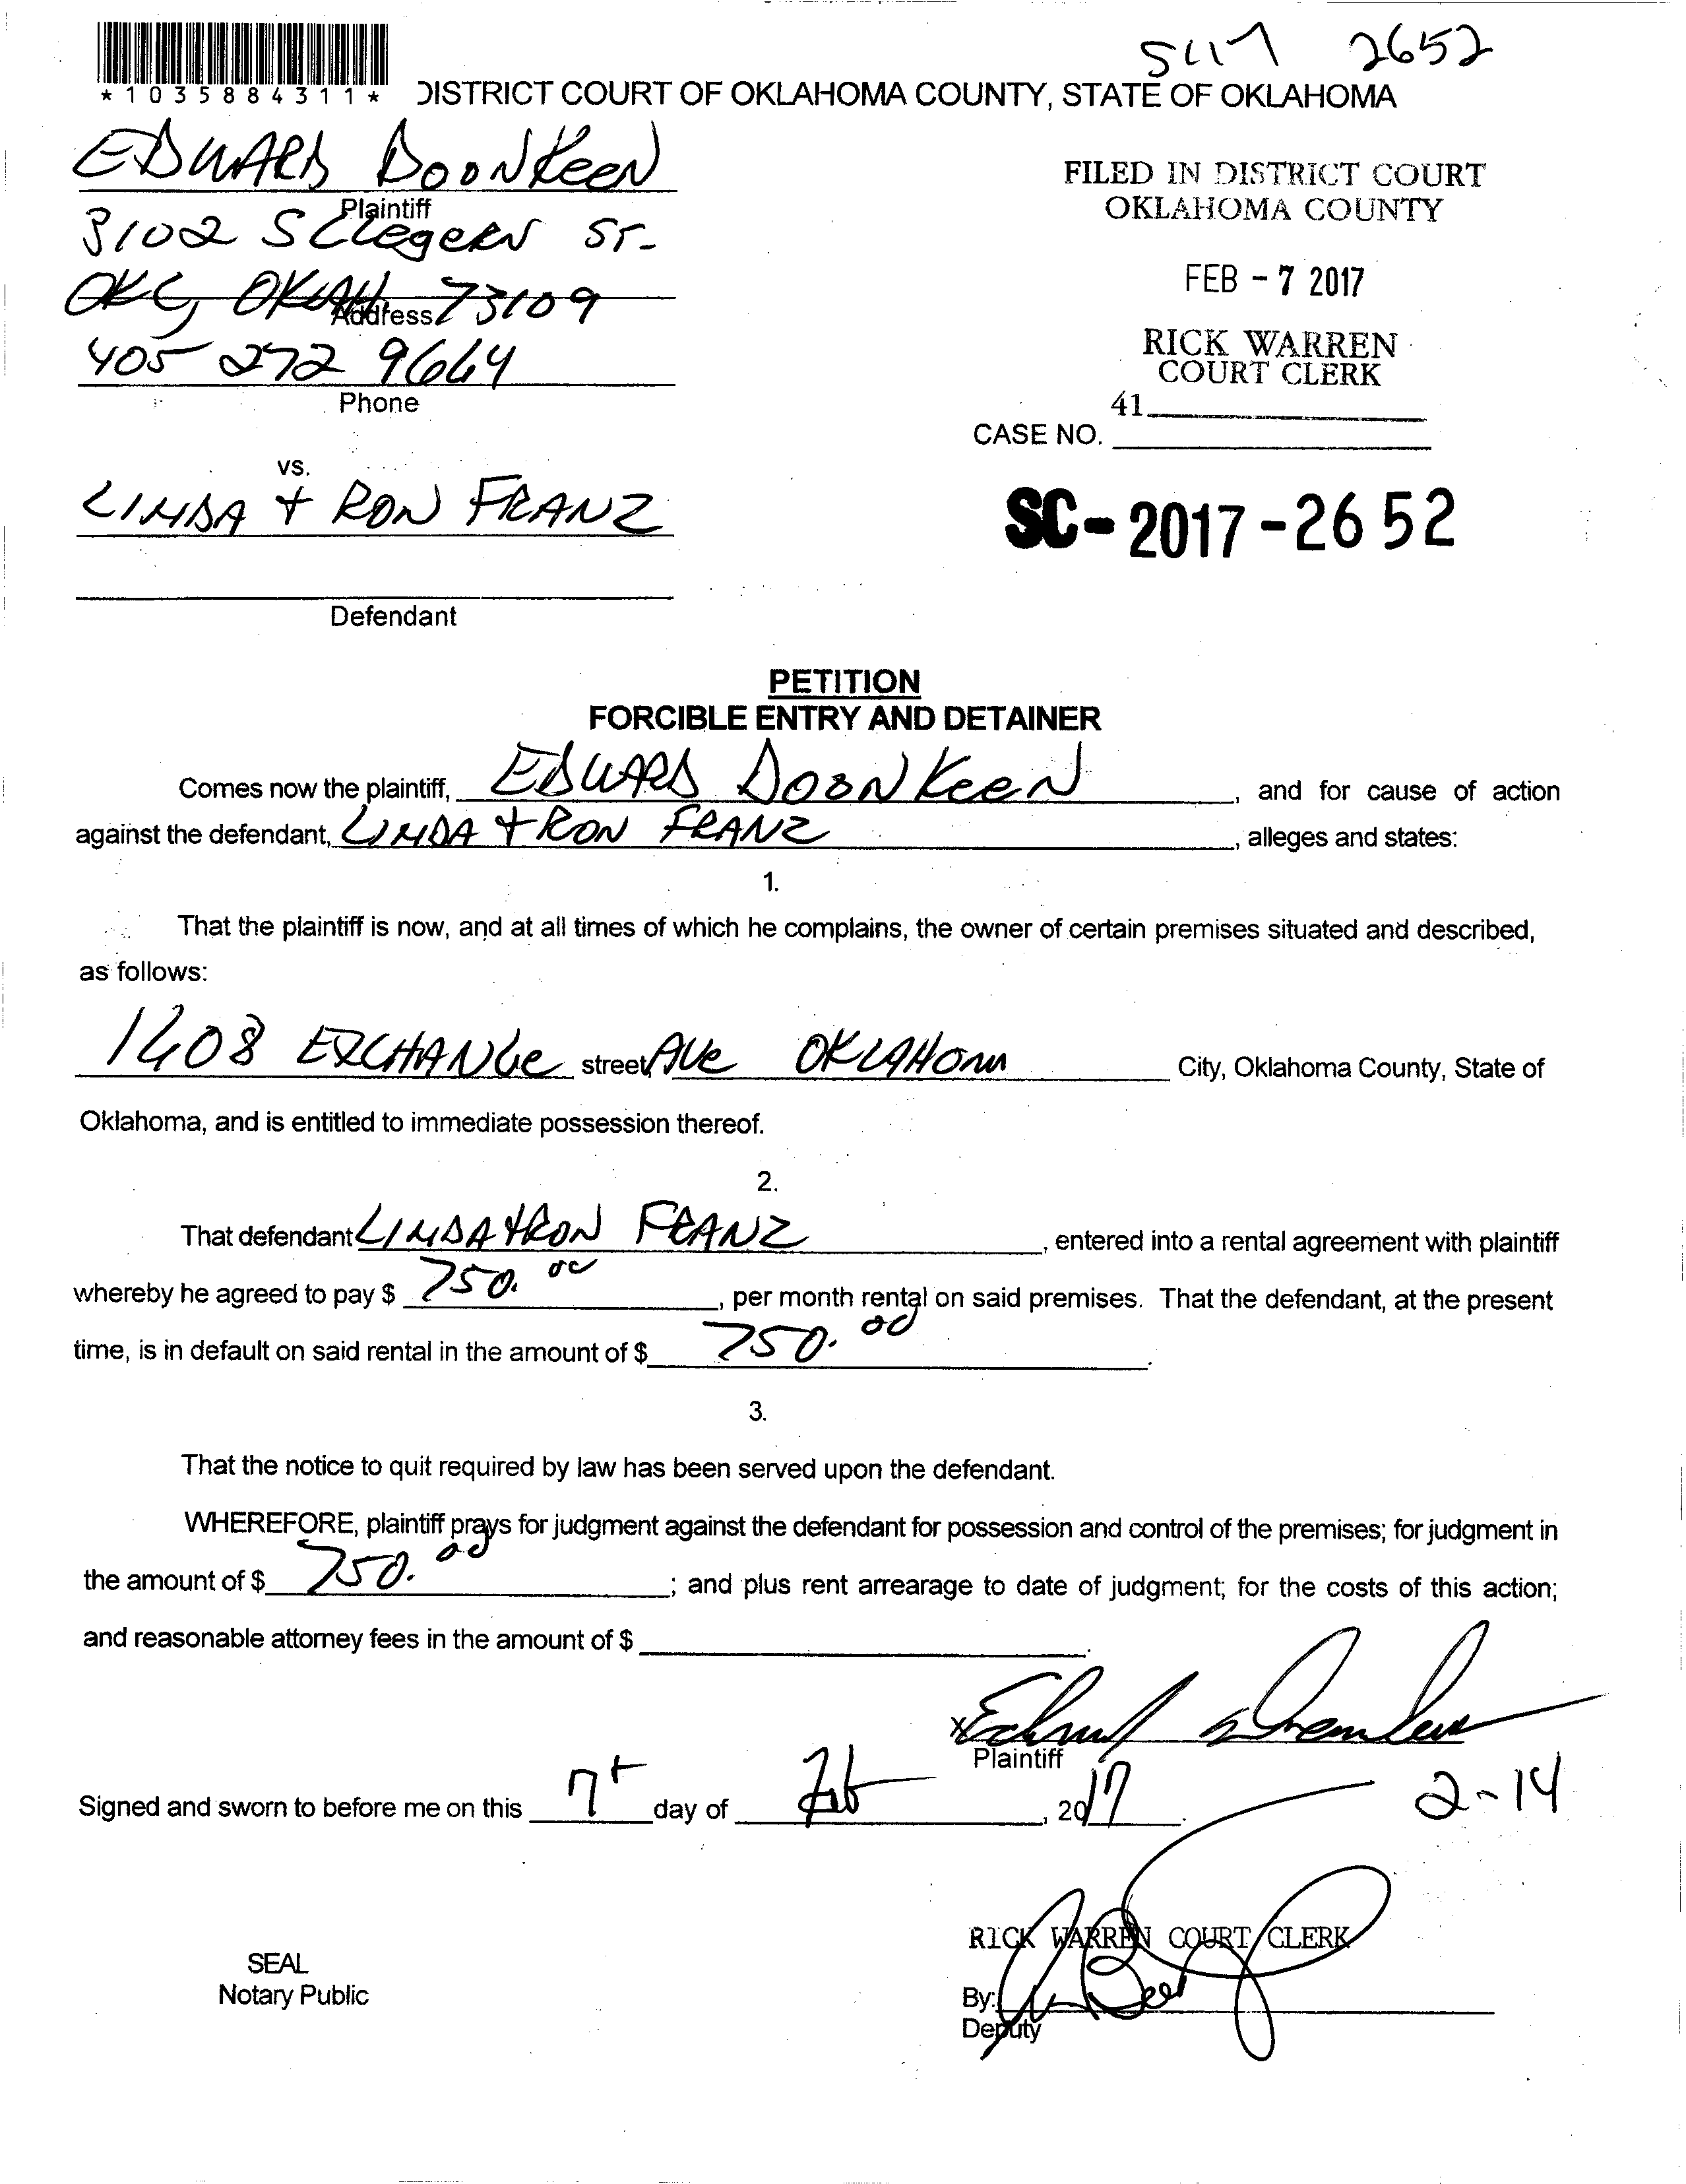 2652
*1035884311*
DISTRICT COURT OF OKLAHOMA COUNTY, STATE OF OKLAHOMA
EDWARD DOONKEEN
Plaintiff
3102 S ST-
OKC, OKLAH 73109
Address
405 272 9664
Phone
FILED IN DISTRICT COURT
OKLAHOMA COUNTY
FEB - 7 2017
RICK WARREN
COURT CLERK
41
CASE NO.
SC-2017-2652
vs.
LINDA + RON FRANZ
Defendant
PETITION
FORCIBLE ENTRY AND DETAINER
Comes now the plaintiff, EDWARD DOONKEEN, and for cause of action
against the defendant, LINDA + RON FRANZ, alleges and states:
1.
That the plaintiff is now, and at all times of which he complains, the owner of certain premises situated and described,
as follows:
1408 EXCHANGE street AVE OKLAHOMA City, Oklahoma County, State of
Oklahoma, and is entitled to immediate possession thereof.
2.
That defendant LINDA + RON FRANZ, entered into a rental agreement with plaintiff
whereby he agreed to pay $ 750.00, per month rental on said premises. That the defendant, at the present
time, is in default on said rental in the amount of $ 750.00.
3.
That the notice to quit required by law has been served upon the defendant.
WHEREFORE, plaintiff prays for judgment against the defendant for possession and control of the premises; for judgment in
the amount of $ 750.00; and plus rent arrearage to date of judgment; for the costs of this action;
and reasonable attorney fees in the amount of $ .
x
Plaintiff
Signed and sworn to before me on this 7t day of Feb, 2017.
2-14
SEAL
Notary Public
RICK WARREN COURT CLERK
By:
Deputy